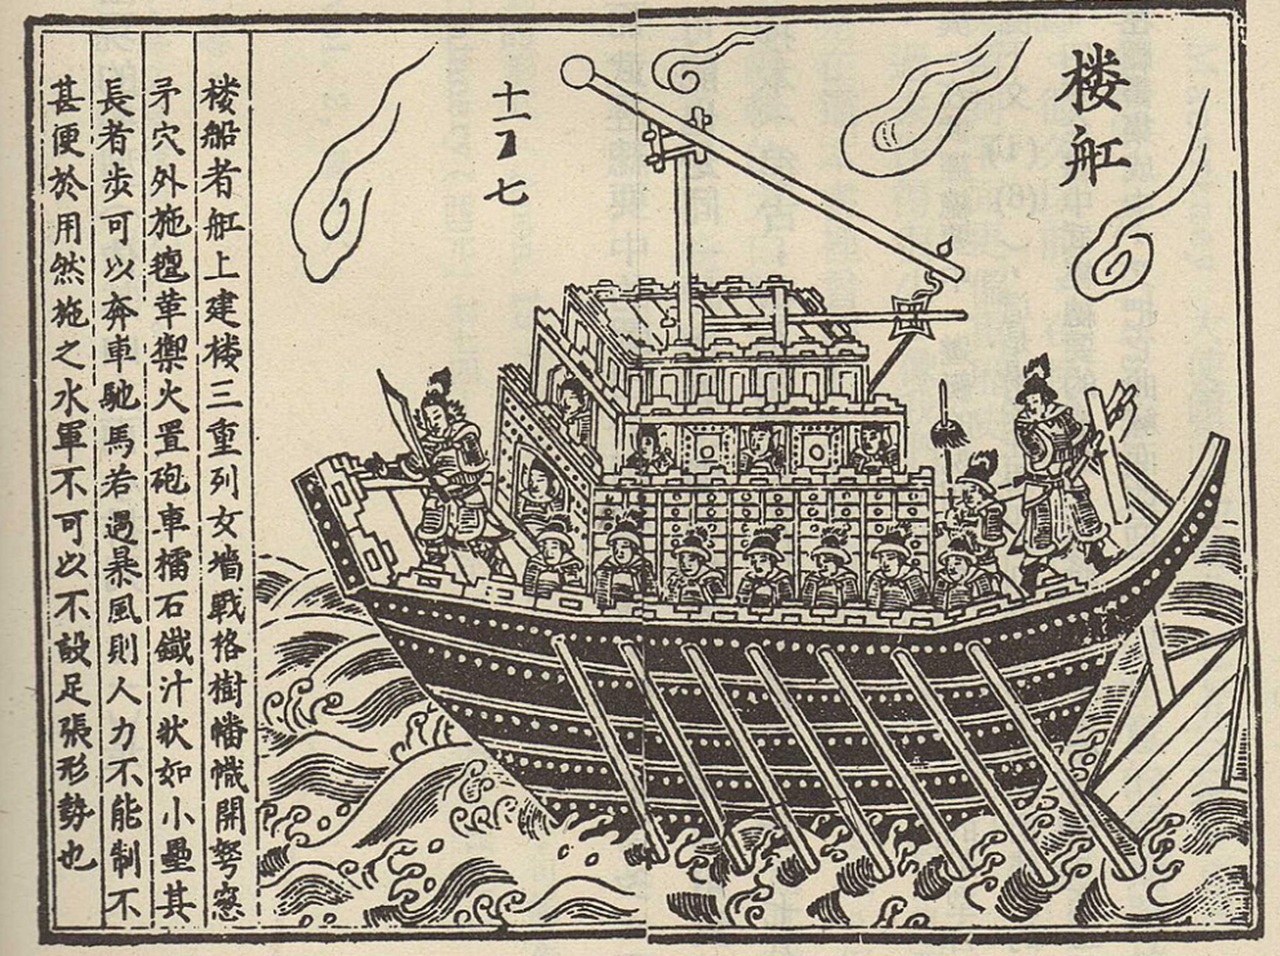 楼舡
十一 七
楼船者舡上建楼三重列女墙戰格樹幡幟開弩窓
矛穴外施氊革禦火置砲車檑石鐵汁狀如小壘其
長者步可以奔車馳馬若遇暴風則人力不能制不
甚便於用然施之水軍不可以不設足張形勢也